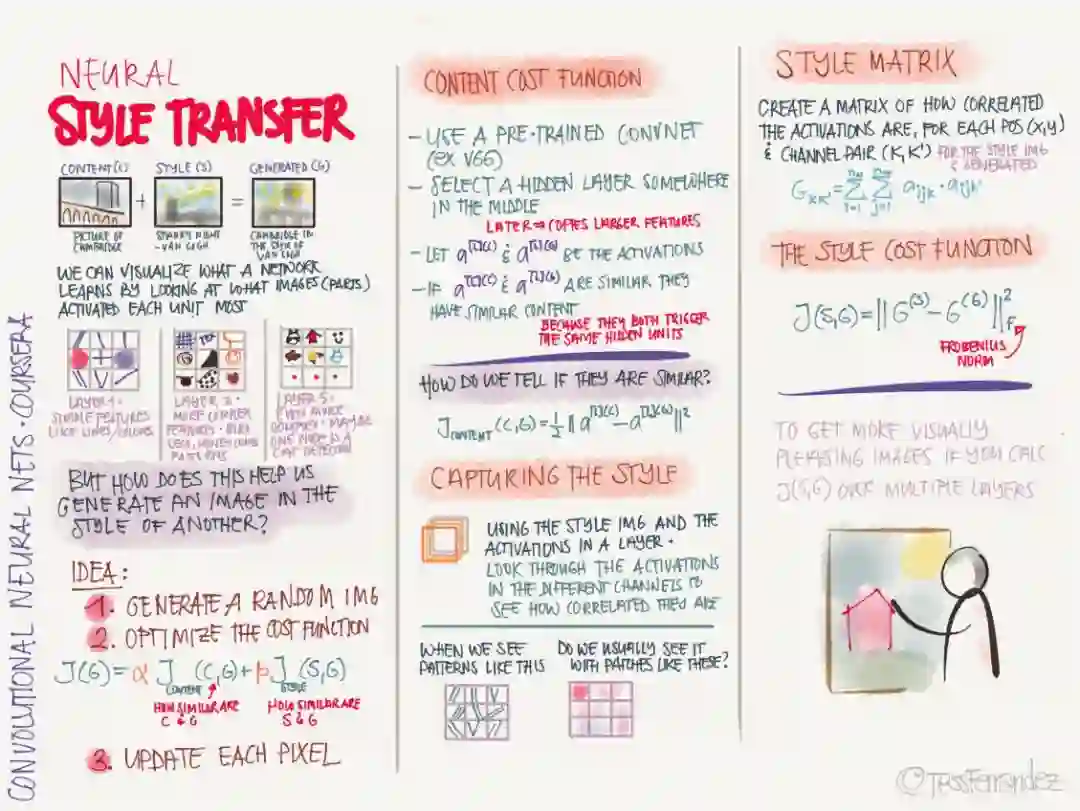 CONVOLUTIONAL NEURAL NETS · COURSERA
NEURAL
STYLE TRANSFER
CONTENT (C) STYLE (S) GENERATED (G)
+ =
PICTURE OF
CAMBRIDGE
STARRY NIGHT
- VAN GOGH
CAMBRIDGE IN
THE STYLE OF
VAN GOGH
WE CAN VISUALIZE WHAT A NETWORK
LEARNS BY LOOKING AT WHAT IMAGES (PARTS)
ACTIVATED EACH UNIT MOST
LAYER 1 ·
SIMPLE FEATURES
LIKE LINES/COLORS
LAYER 2 ·
MORE COMPLEX
FEATURES ·
PATTERNS
LAYER 5 ·
EVEN MORE
COMPLEX · MAYBE
ONE NODE IS A
CAT DETECTOR
BUT HOW DOES THIS HELP US
GENERATE AN IMAGE IN THE
STYLE OF ANOTHER?
IDEA:
1. GENERATE A RANDOM IMG
2. OPTIMIZE THE COST FUNCTION
J(G) = α J_CONTENT (C,G) + β J_STYLE (S,G)
HOW SIMILAR ARE
C & G
HOW SIMILAR ARE
S & G
3. UPDATE EACH PIXEL
CONTENT COST FUNCTION
- USE A PRE-TRAINED CONVNET
(EX VGG)
- SELECT A HIDDEN LAYER SOMEWHERE
IN THE MIDDLE
LATER ⇒ COPIES LARGER FEATURES
- LET a^[l](C) & a^[l](G) BE THE ACTIVATIONS
- IF a^[l](C) & a^[l](G) ARE SIMILAR THEY
HAVE SIMILAR CONTENT
BECAUSE THEY BOTH TRIGGER
THE SAME HIDDEN UNITS
HOW DO WE TELL IF THEY ARE SIMILAR?
J_CONTENT (C,G) = ½ || a^[l](C) - a^[l](G) ||²
CAPTURING THE STYLE
USING THE STYLE IMG AND THE
ACTIVATIONS IN A LAYER ·
LOOK THROUGH THE ACTIVATIONS
IN THE DIFFERENT CHANNELS TO
SEE HOW CORRELATED THEY ARE
WHEN WE SEE
PATTERNS LIKE THIS
DO WE USUALLY SEE IT
WITH PATCHES LIKE THESE?
STYLE MATRIX
CREATE A MATRIX OF HOW CORRELATED
THE ACTIVATIONS ARE, FOR EACH POS (X,Y)
& CHANNEL PAIR (K,K') FOR THE STYLE IMG
& GENERATED
G_KK' = Σ Σ a_ijk · a_ijk'
THE STYLE COST FUNCTION
J(S,G) = || G^(S) - G^(G) ||²_F
FROBENIUS
NORM
TO GET MORE VISUALLY
PLEASING IMAGES IF YOU CALC
J(S,G) OVER MULTIPLE LAYERS
©TessFerrandez